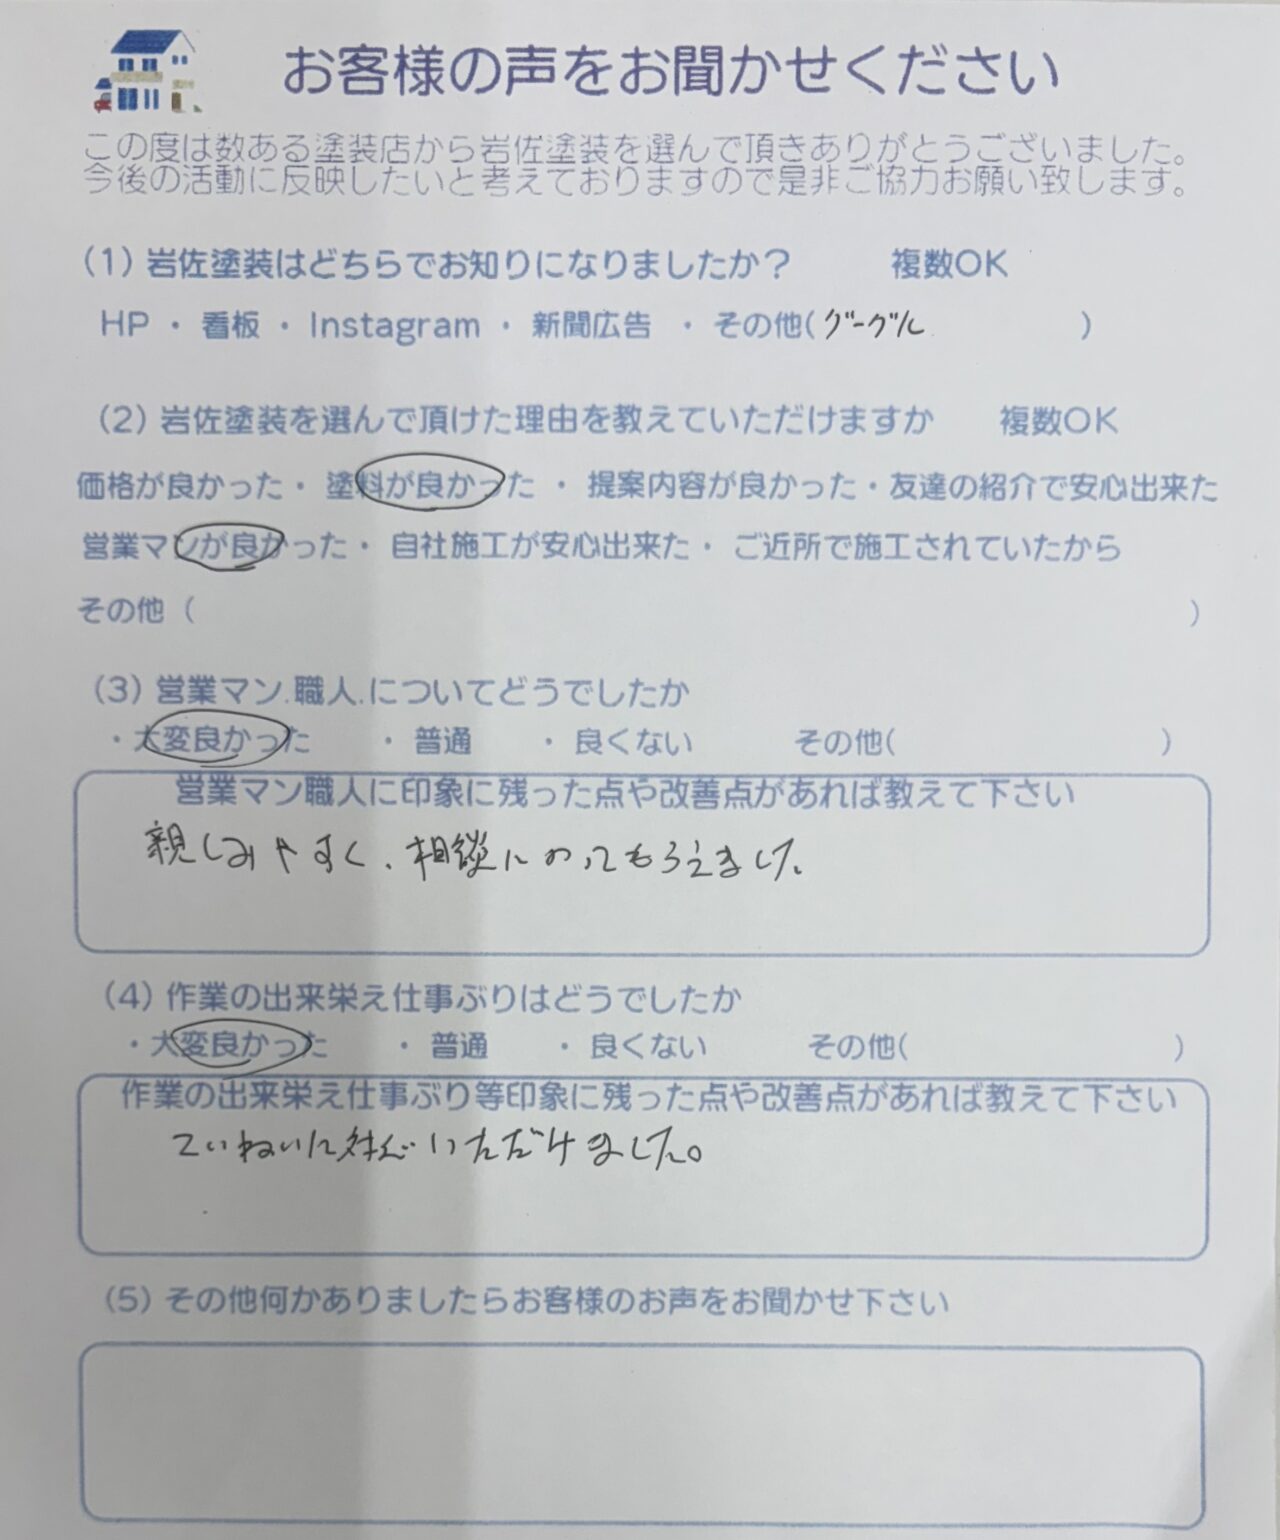 お客様の声をお聞かせください
この度は数ある塗装店から岩佐塗装を選んで頂きありがとうございました。
今後の活動に反映したいと考えておりますので是非ご協力お願い致します。
(1) 岩佐塗装はどちらでお知りになりましたか? 複数OK
HP ・ 看板 ・ Instagram ・ 新聞広告 ・ その他(グーグル )
(2) 岩佐塗装を選んで頂けた理由を教えていただけますか 複数OK
価格が良かった・ 塗料が良かった ・ 提案内容が良かった・友達の紹介で安心出来た
営業マンが良かった・ 自社施工が安心出来た・ ご近所で施工されていたから
その他 ( )
(3) 営業マン.職人.についてどうでしたか
・大変良かった ・普通 ・良くない その他( )
営業マン職人に印象に残った点や改善点があれば教えて下さい
親しみやすく、相談にのってもらえました。
(4) 作業の出来栄え仕事ぶりはどうでしたか
・大変良かった ・普通 ・良くない その他( )
作業の出来栄え仕事ぶり等印象に残った点や改善点があれば教えて下さい
ていねいに対応いただけました。
(5) その他何かありましたらお客様のお声をお聞かせ下さい